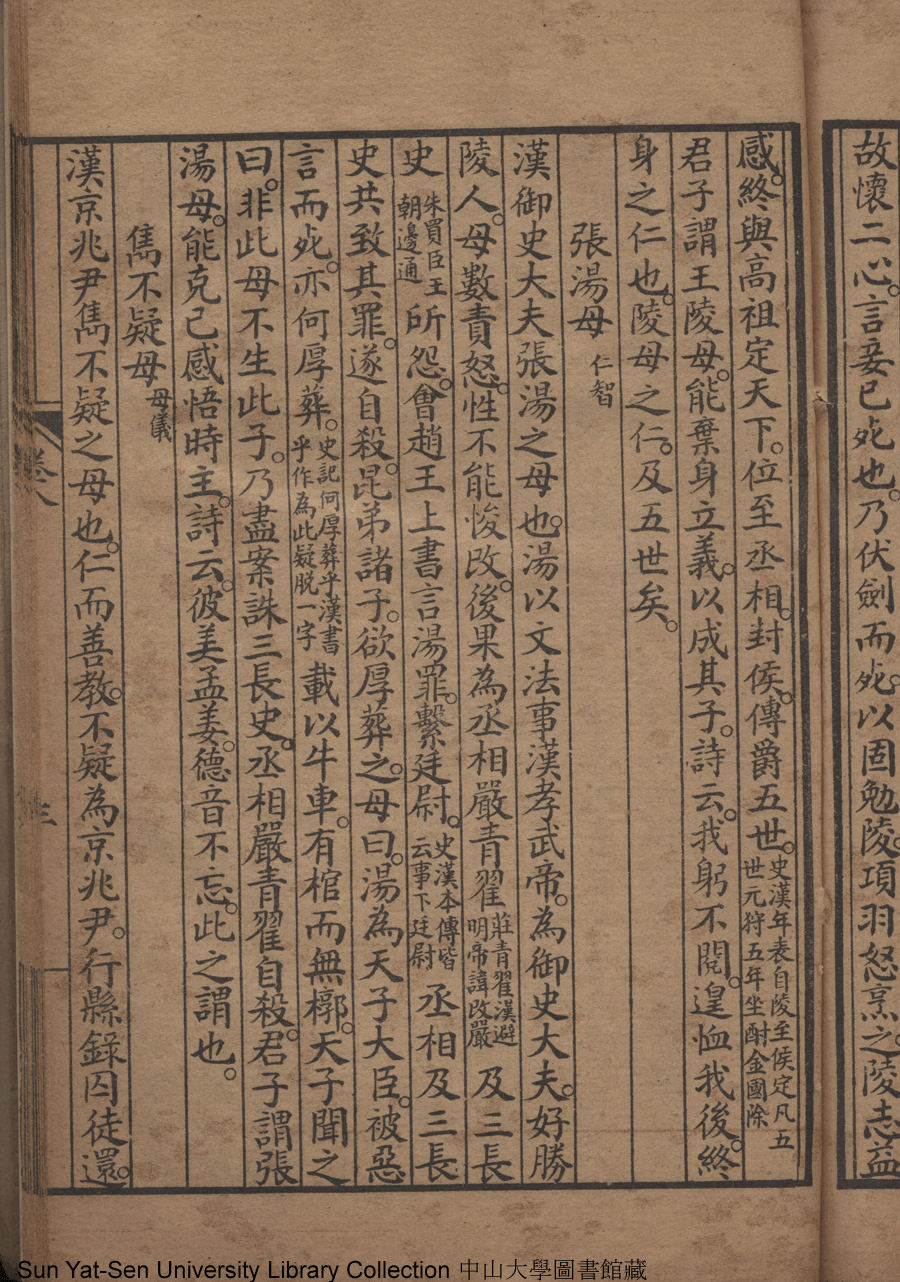 故懷二心。言妾已死也。乃伏劍而死。以固勉陵。項羽怒烹之。陵志益
感。終與高祖定天下。位至丞相。封侯。傳爵五世。史漢年表自陵至侯定凡五世元狩五年坐酎金國除
君子謂王陵母。能棄身立義。以成其子。詩云。我躬不閱。遑恤我後。終
身之仁也。陵母之仁。及五世矣。
張湯母 仁智
漢御史大夫張湯之母也。湯以文法事漢孝武帝。為御史大夫。好勝
陵人。母數責怒。性不能悛改。後果為丞相嚴青翟莊青翟漢避明帝諱改嚴及三長
史朱買臣王朝邊通所怨。會趙王上書言湯罪。繫廷尉。史漢本傳皆云事下廷尉丞相及三長
史共致其罪。遂自殺。昆弟諸子。欲厚葬之。母曰。湯為天子大臣。被惡
言而死。亦何厚葬。史記何厚葬乎漢書乎作為此疑脫一字載以牛車。有棺而無槨。天子聞之
曰。非此母不生此子。乃盡案誅三長史。丞相嚴青翟自殺。君子謂張
湯母。能克己感悟時主。詩云。彼美孟姜。德音不忘。此之謂也。
雋不疑母 母儀
漢京兆尹雋不疑之母也。仁而善教。不疑為京兆尹。行縣錄囚徒還。
卷八
Sun Yat-Sen University Library Collection 中山大學圖書館藏